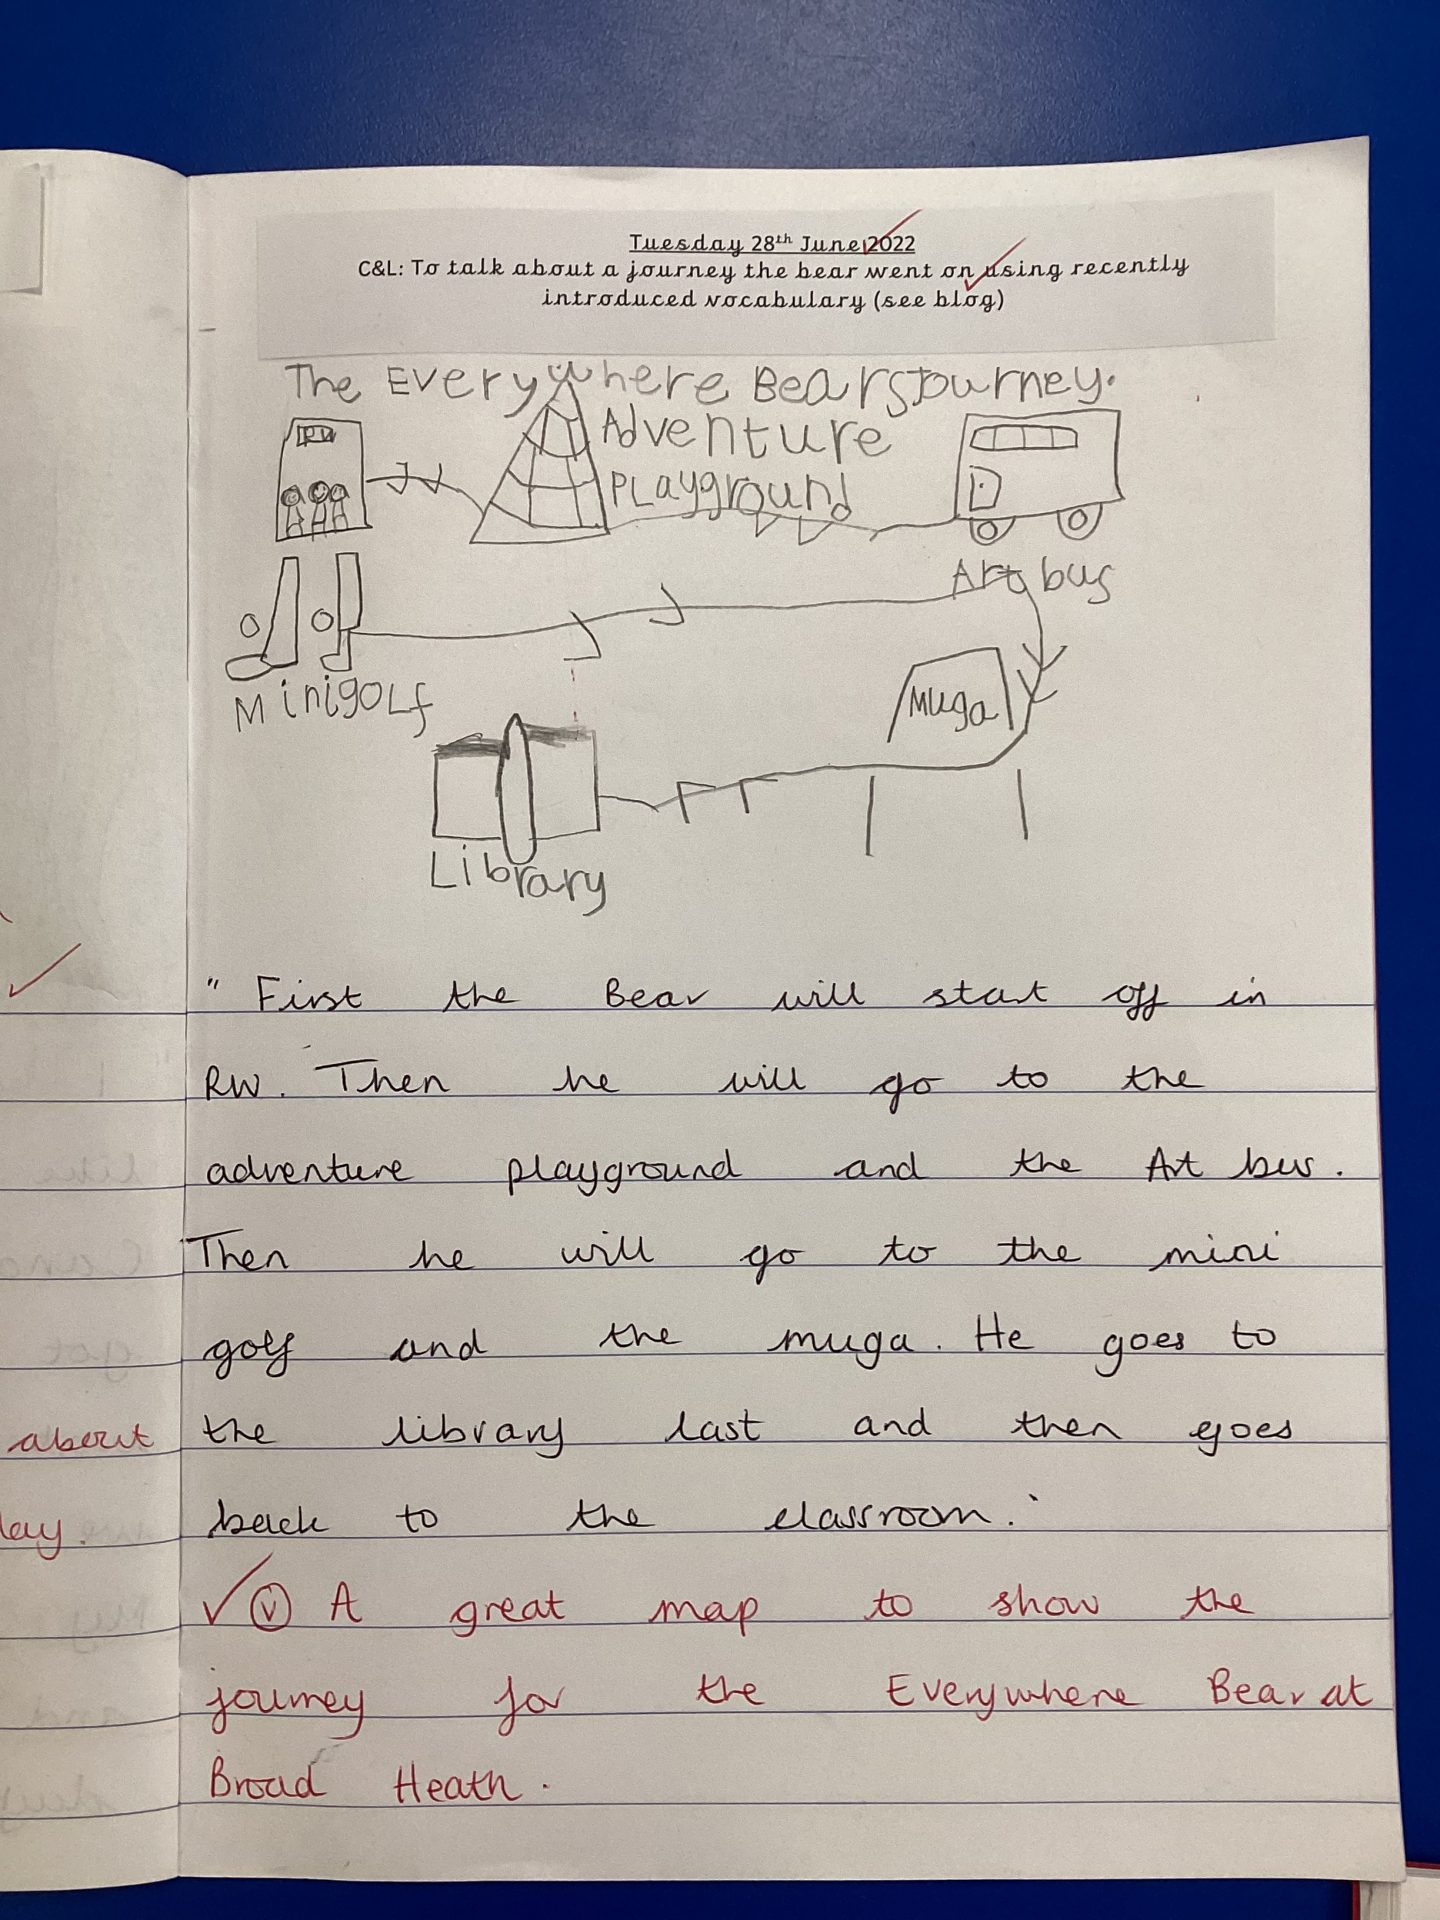 Tuesday 28th June 2022
C&L: To talk about a journey the bear went on using recently
introduced vocabulary (see blog)
The Everywhere Bears Journey.
RW
Adventure
Playground
Art bus
Minigolf
Muga
Library
" First the Bear will start off in
RW. Then he will go to the
adventure playground and the Art bus.
Then he will go to the mini
golf and the muga. He goes to
the library last and then goes
back to the classroom."
✓ Ⓥ A great map to show the
journey for the Everywhere Bear at
Broad Heath.
about